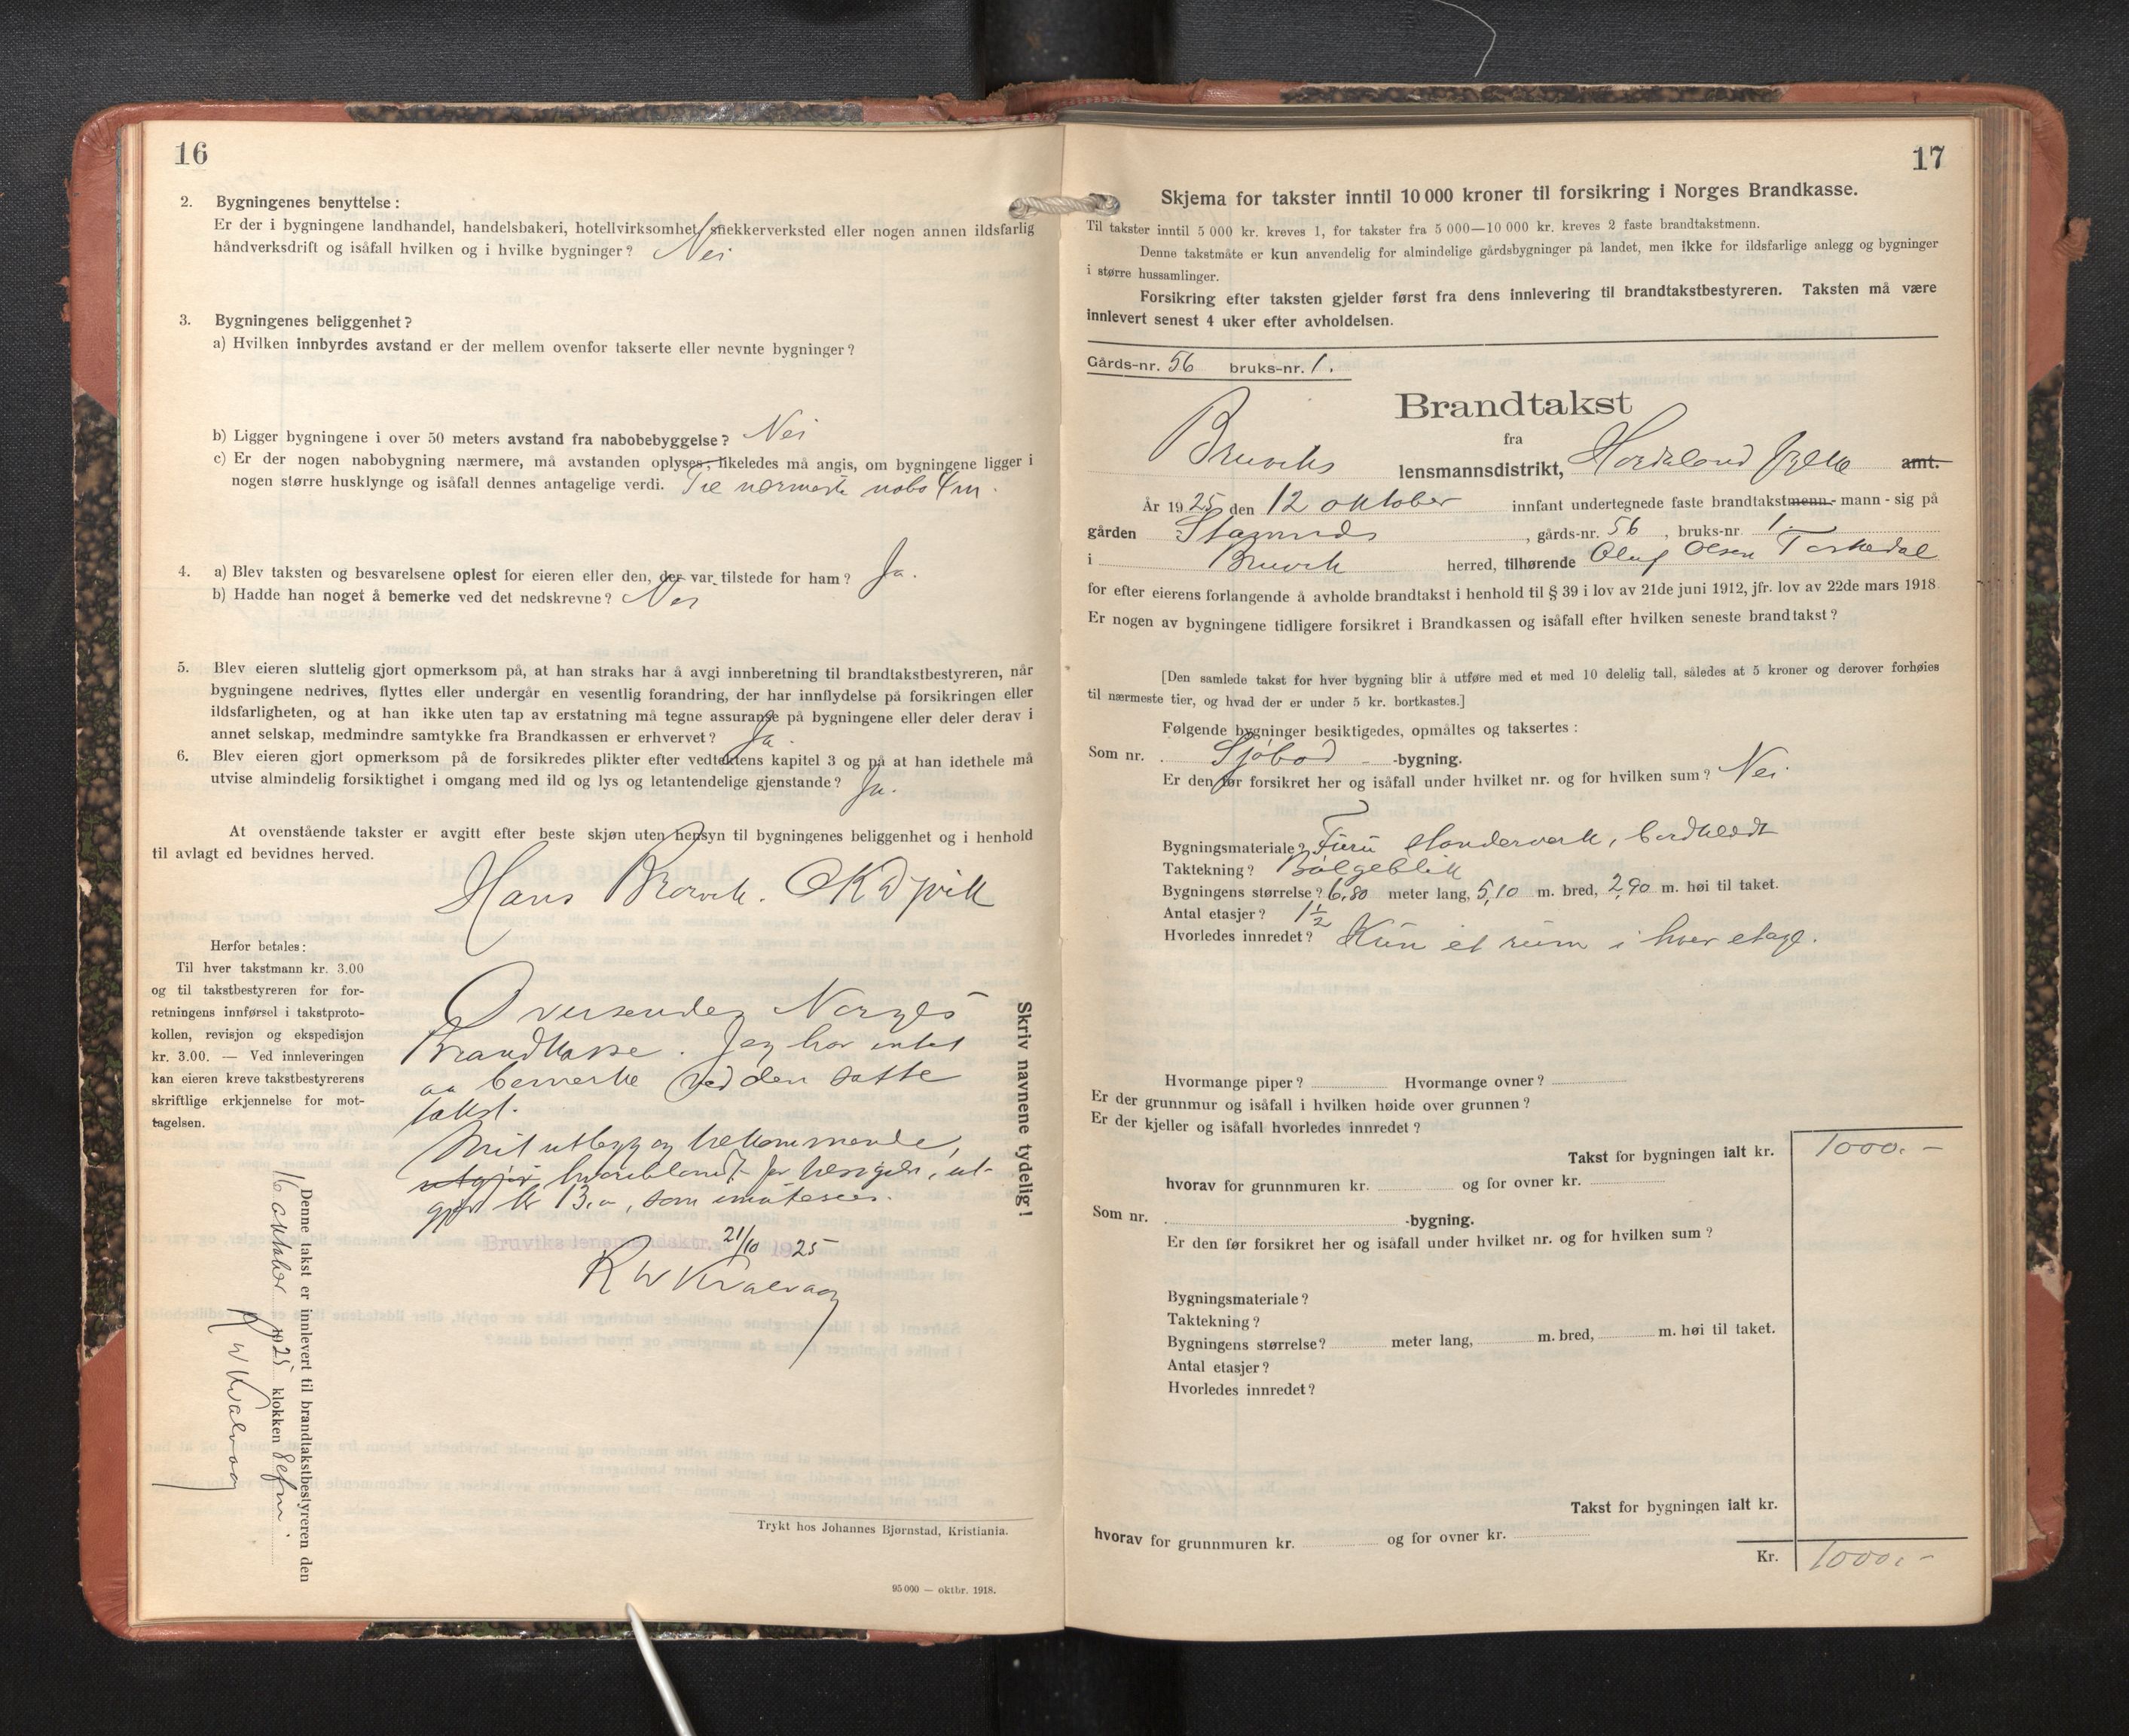 16
2. Bygningenes benyttelse :
Er der i bygningene landhandel, handelsbakeri, hotellvirksomhet, snekkerverksted eller nogen annen ildsfarlig
håndverksdrift og isåfall hvilken og i hvilke bygninger? Nei
3. Bygningenes beliggenhet?
a) Hvilken innbyrdes avstand er der mellem ovenfor takserte eller nevnte bygninger?
b) Ligger bygningene i over 50 meters avstand fra nabobebyggelse? Nei
c) Er der nogen nabobygning nærmere, må avstanden oplyses; likeledes må angis, om bygningene ligger i
nogen større husklynge og isåfall dennes antagelige verdi. Til nærmeste nabo 4 m.
4. a) Blev taksten og besvarelsene oplest for eieren eller den, der var tilstede for ham? Ja.
b) Hadde han noget å bemerke ved det nedskrevne? Nei
5. Blev eieren sluttelig gjort opmerksom på, at han straks har å avgi innberetning til brandtakstbestyreren, når
bygningene nedrives, flyttes eller undergår en vesentlig forandring, der har innflydelse på forsikringen eller
ildsfarligheten, og at han ikke uten tap av erstatning må tegne assuranse på bygningene eller deler derav i
annet selskap, medmindre samtykke fra Brandkassen er erhvervet? Ja.
6. Blev eieren gjort opmerksom på de forsikredes plikter efter vedtektens kapitel 3 og på at han idethele må
utvise almindelig forsiktighet i omgang med ild og lys og letantendelige gjenstande? Ja.
At ovenstående takster er avgitt efter beste skjøn uten hensyn til bygningenes beliggenhet og i henhold
til avlagt ed bevidnes herved.
Hans
Herfor betales:
Til hver takstmann kr. 3.00
og til takstbestyreren for for-
retningens innførsel i takstproto-
kollen, revisjon og ekspedisjon
kr. 3.00. — Ved innleveringen
kan eieren kreve takstbestyrerens
skriftlige erkjennelse for mot-
tagelsen.
Oversendes Norges
Brandkasse. Jeg har intet
aa bemerke ved den satte
takst.
Mit utlegg og tilkommende,
utgjør hvoriblandt for besigtelse, ut-
gjør kr 13.00, som imøtesees.
Bruviks lensmandsktr. 21/10 1925
R W Kvalvaag
Skriv navnene tydelig!
Denne takst er innlevert til brandtakstbestyreren den
16 oktober 1925 klokken 8 efm.
R W Kvalvaag
Trykt hos Johannes Bjørnstad, Kristiania.
95 000 — oktbr. 1918.
17
Skjema for takster inntil 10 000 kroner til forsikring i Norges Brandkasse.
Til takster inntil 5 000 kr. kreves 1, for takster fra 5 000—10 000 kr. kreves 2 faste brandtakstmenn.
Denne takstmåte er kun anvendelig for almindelige gårdsbygninger på landet, men ikke for ildsfarlige anlegg og bygninger
i større hussamlinger.
Forsikring efter taksten gjelder først fra dens innlevering til brandtakstbestyreren. Taksten må være
innlevert senest 4 uker efter avholdelsen.
Gårds-nr. 56 bruks-nr. 1.
Brandtakst
fra
Bruviks lensmannsdistrikt, Hordaland fylke amt.
År 1925 den 12 oktober innfant undertegnede faste brandtakstmenn - mann - sig på
gården Stamnes, gårds-nr. 56, bruks-nr 1
i Bruvik herred, tilhørende Oluf Olsen Toskedal
for efter eierens forlangende å avholde brandtakst i henhold til § 39 i lov av 21de juni 1912, jfr. lov av 22de mars 1918.
Er nogen av bygningene tidligere forsikret i Brandkassen og isåfall efter hvilken seneste brandtakst?
[Den samlede takst for hver bygning blir å utføre med et med 10 delelig tall, således at 5 kroner og derover forhøies
til nærmeste tier, og hvad der er under 5 kr. bortkastes.]
Følgende bygninger besiktigedes, opmåltes og taksertes :
Som nr. Sjøbod -bygning.
Er den før forsikret her og isåfall under hvilket nr. og for hvilken sum? Nei
Bygningsmateriale? Furu standerverk, bordklædt
Taktekning? Bølgeblik
Bygningens størrelse? 6,80 meter lang, 5,10 m. bred, 2,90 m. høi til taket.
Antal etasjer? 1 1/2
Hvorledes innredet? Kun et rum i hver etage.
Hvormange piper? Hvormange ovner?
Er der grunnmur og isåfall i hvilken høide over grunnen?
Er der kjeller og isåfall hvorledes innredet?
Takst for bygningen ialt kr. 1000.-
hvorav for grunnmuren kr. og for ovner kr.
Som nr. -bygning.
Er den før forsikret her og isåfall under hvilket nr. og for hvilken sum?
Bygningsmateriale?
Taktekning?
Bygningens størrelse? meter lang, m. bred, m. høi til taket.
Antal etasjer?
Hvorledes innredet?
Takst for bygningen ialt kr.
hvorav for grunnmuren kr. og for ovner kr.
Kr. 1000.-